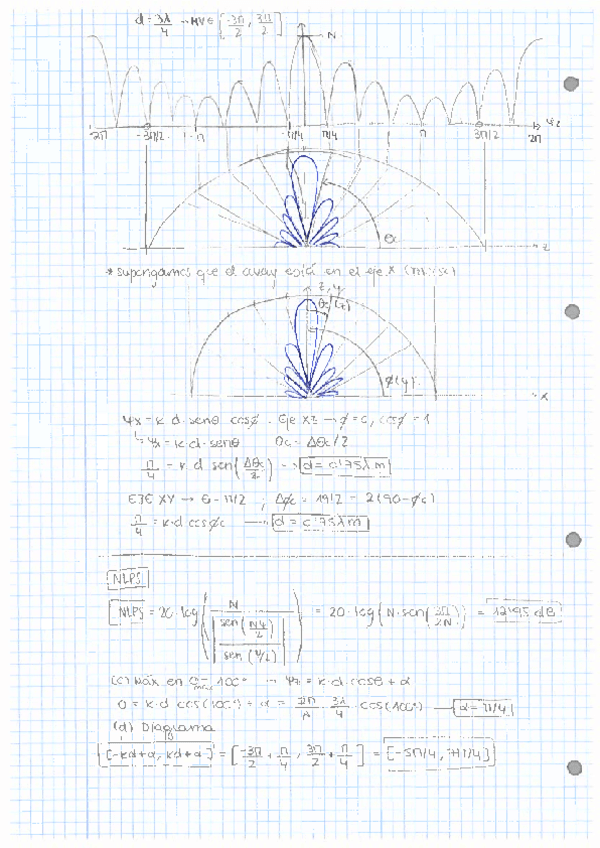 d = 3λ/4 → MV ∈ [-3π/2, 3π/2]
N
-2π -3π/2 -π -π/4 π/4 π 3π/2 2π ψz
θ z
* Supongamos que el array está en el eje X
z, y
θc (z)
φ(y)
x
ψx = k d · senθ cosφ · Eje XZ → φ = 0, cosφ = 1
↳ ψx = k·d·senθ θc = Δθc/2
π/4 = k d sen(Δθc/2) → d = 0'75λ m
EJE XY → θ = π/2 ; Δφc = 19'2 = 2(90-φc)
π/4 = k·d cosφc → d = 0'75λ m
NLPS
NLPS = 20·log(N / |sen(Nψ/2) / sen(ψ/2)|) = 20·log(N·sen(3π/2N)) = 12'95 dB
(c) Máx en θmáx = 100° → ψz = k·d·cosθ + α
0 = k·d cos(100°) + α = 2π/λ · 3λ/4 · cos(100°) → α = π/4
(d) Diagrama
[-kd+α, kd+α] = [-3π/2 + π/4, 3π/2 + π/4] = [-5π/4, 7π/4]